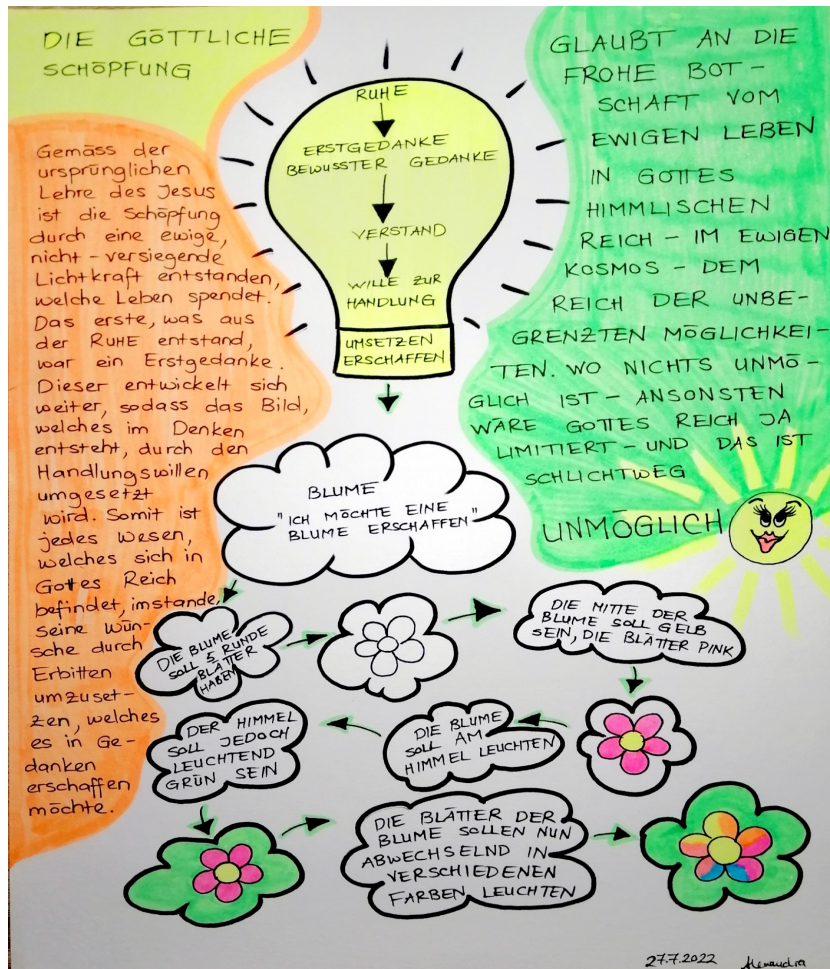 DIE GÖTTLICHE
SCHÖPFUNG
Gemäss der
ursprünglichen
Lehre des Jesus
ist die Schöpfung
durch eine ewige,
nicht-versiegende
Lichtkraft entstanden,
welche Leben spendet.
Das erste, was aus
der RUHE entstand,
war ein Erstgedanke.
Dieser entwickelt sich
weiter, sodass das Bild,
welches im Denken
entsteht, durch den
Handlungswillen
umgesetzt
wird. Somit ist
jedes Wesen,
welches sich in
Gottes Reich
befindet, imstande,
seine Wün-
sche durch
Erbitten
umzuset-
zen, welches
es in Ge-
danken
erschaffen
möchte.
RUHE
ERSTGEDANKE
BEWUSSTER GEDANKE
VERSTAND
WILLE ZUR
HANDLUNG
UMSETZEN
ERSCHAFFEN
GLAUBT AN DIE
FROHE BOT-
SCHAFT VOM
EWIGEN LEBEN
IN GOTTES
HIMMLISCHEN
REICH - IM EWIGEN
KOSMOS - DEM
REICH DER UNBE-
GRENZTEN MÖGLICHKEI-
TEN. WO NICHTS UNMÖ-
GLICH IST - ANSONSTEN
WÄRE GOTTES REICH JA
LIMITIERT - UND DAS IST
SCHLICHTWEG
UNMÖGLICH
BLUME
"ICH MÖCHTE EINE
BLUME ERSCHAFFEN"
DIE BLUME
SOLL 5 RUNDE
BLÄTTER
HABEN
DIE MITTE DER
BLUME SOLL GELB
SEIN, DIE BLÄTTER PINK
DIE BLUME
SOLL AM
HIMMEL LEUCHTEN
DER HIMMEL
SOLL JEDOCH
LEUCHTEND
GRÜN SEIN
DIE BLÄTTER DER
BLUME SOLLEN NUN
ABWECHSELND IN
VERSCHIEDENEN
FARBEN LEUCHTEN
27.7.2022 Alexandra